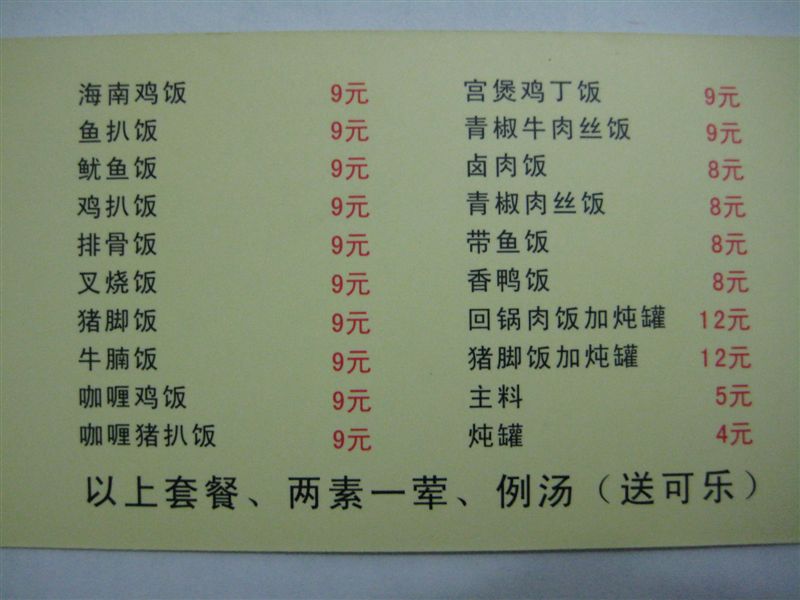 海南鸡饭 9元
鱼扒饭 9元
鱿鱼饭 9元
鸡扒饭 9元
排骨饭 9元
叉烧饭 9元
猪脚饭 9元
牛腩饭 9元
咖喱鸡饭 9元
咖喱猪扒饭 9元
宫煲鸡丁饭 9元
青椒牛肉丝饭 9元
卤肉饭 8元
青椒肉丝饭 8元
带鱼饭 8元
香鸭饭 8元
回锅肉饭加炖罐 12元
猪脚饭加炖罐 12元
主料 5元
炖罐 4元
以上套餐、两素一荤、例汤（送可乐）